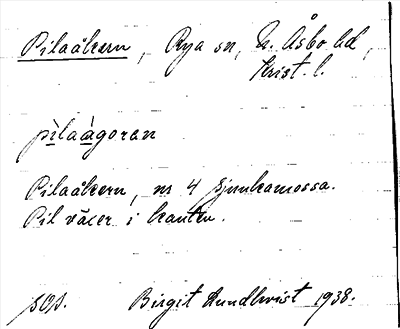 Pilaåkern, Rya sn, N. Åsbo hd,
Krist. l.
pìlaàgoran
Pilaåkern, nr 4 Sjunkamossa.
Pil växer i kanten.
Birgit Lundkvist 1938.